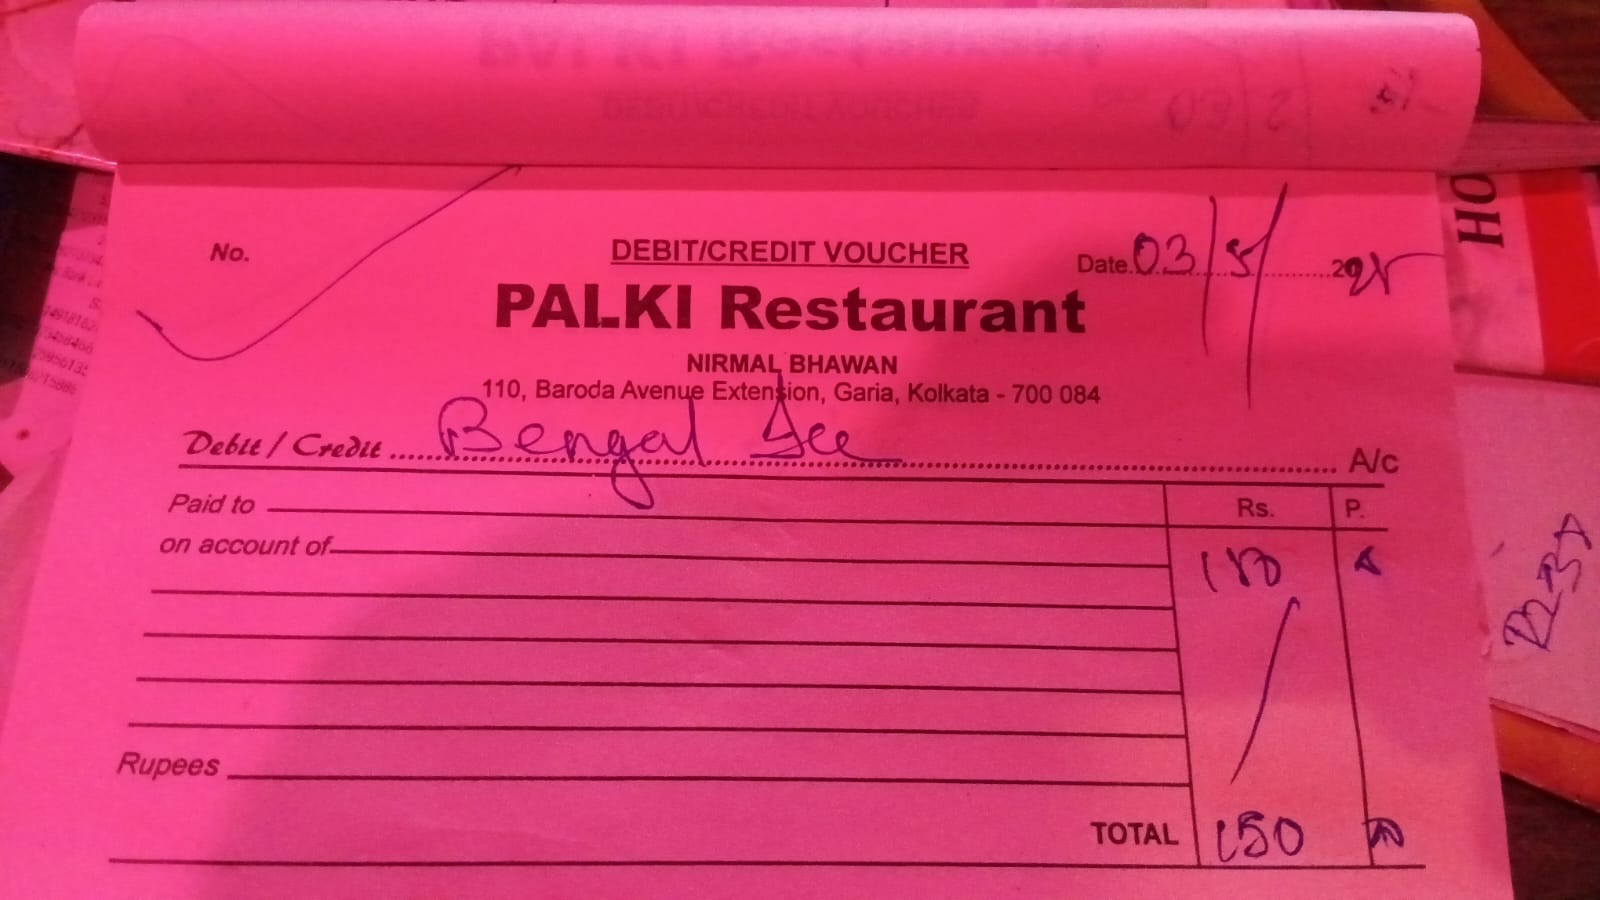 No.
DEBIT/CREDIT VOUCHER
Date 03/5/2025
PALKI Restaurant
NIRMAL BHAWAN
110, Baroda Avenue Extension, Garia, Kolkata - 700 084
Debit / Credit Bengal Ice A/c
Paid to
Rs. P.
on account of
150
Rupees
TOTAL 150
HO